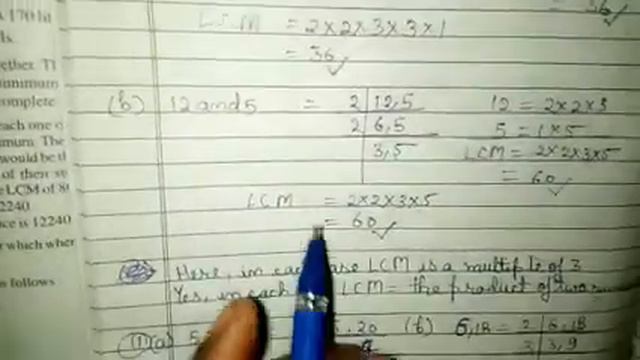 170
ds.
LCM = 2×2×3×3×1
= 36
ether. Tl
minimum
omplete
(b) 12 and 5 = 2 | 12,5 12 = 2×2×3
2 | 6,5 5 = 1×5
3,5 LCM = 2×2×3×5
= 60
each one o
mum. The
would be th
of their se
e LCM of 8
2240
ce is 12240
r which wher
LCM = 2×2×3×5
= 60
Here, in each case LCM is a multiple of 3
Yes, in each LCM = the product of two
s follows
(a) 5 20 (b) 6,18 = 2 | 6,18
3 | 3,9